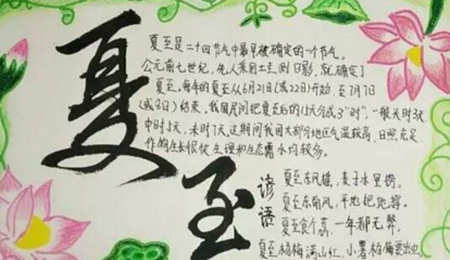 夏至
夏至是二十四节气中最早被确定的一个节气。
公元前七世纪,先人采用土圭测日影,就确定了
夏至。每年的夏至从6月21日(或22日)开始,至7月7日
(或8日)结束,我国民间把夏至后的15天分成3"时",一般头时3天
中时5天,末时7天,这期间我国大部分地区气温较高,日照充足
作物生长很快,生理和生态需水均较多。
谚语
夏至东风摇,麦子水里捞。
夏至东南风,平地把船撑。
夏至食个荔,一年都无弊。
夏至杨梅满山红,小暑杨梅要出虫。